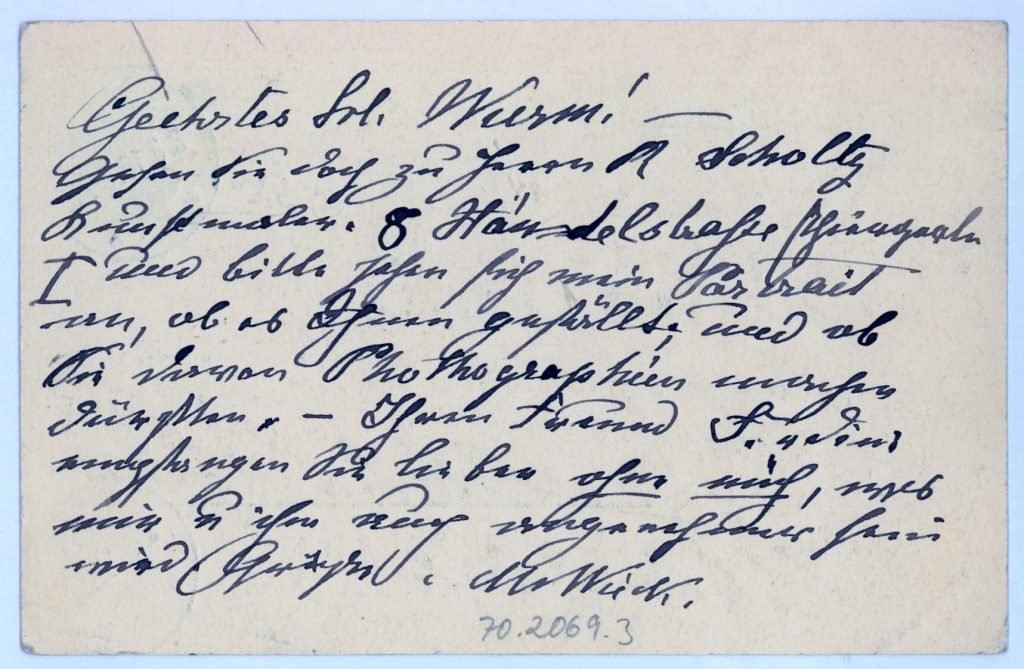 Geehrtes Frl. Wurm! —
Gehen Sie doch zu Herrn R Scholtz
Kunstmaler. 8 Händelstraße
I und bitte sehen sich mein Portrait
an, ob es Ihnen gefällt, und ob
Sie davon Phothographien machen
dürften. — Ihren Freund
empfangen Sie lieber ohne mich, was
mir u ihm auch angenehmer sein
wird. Grüße.
70.2069.3